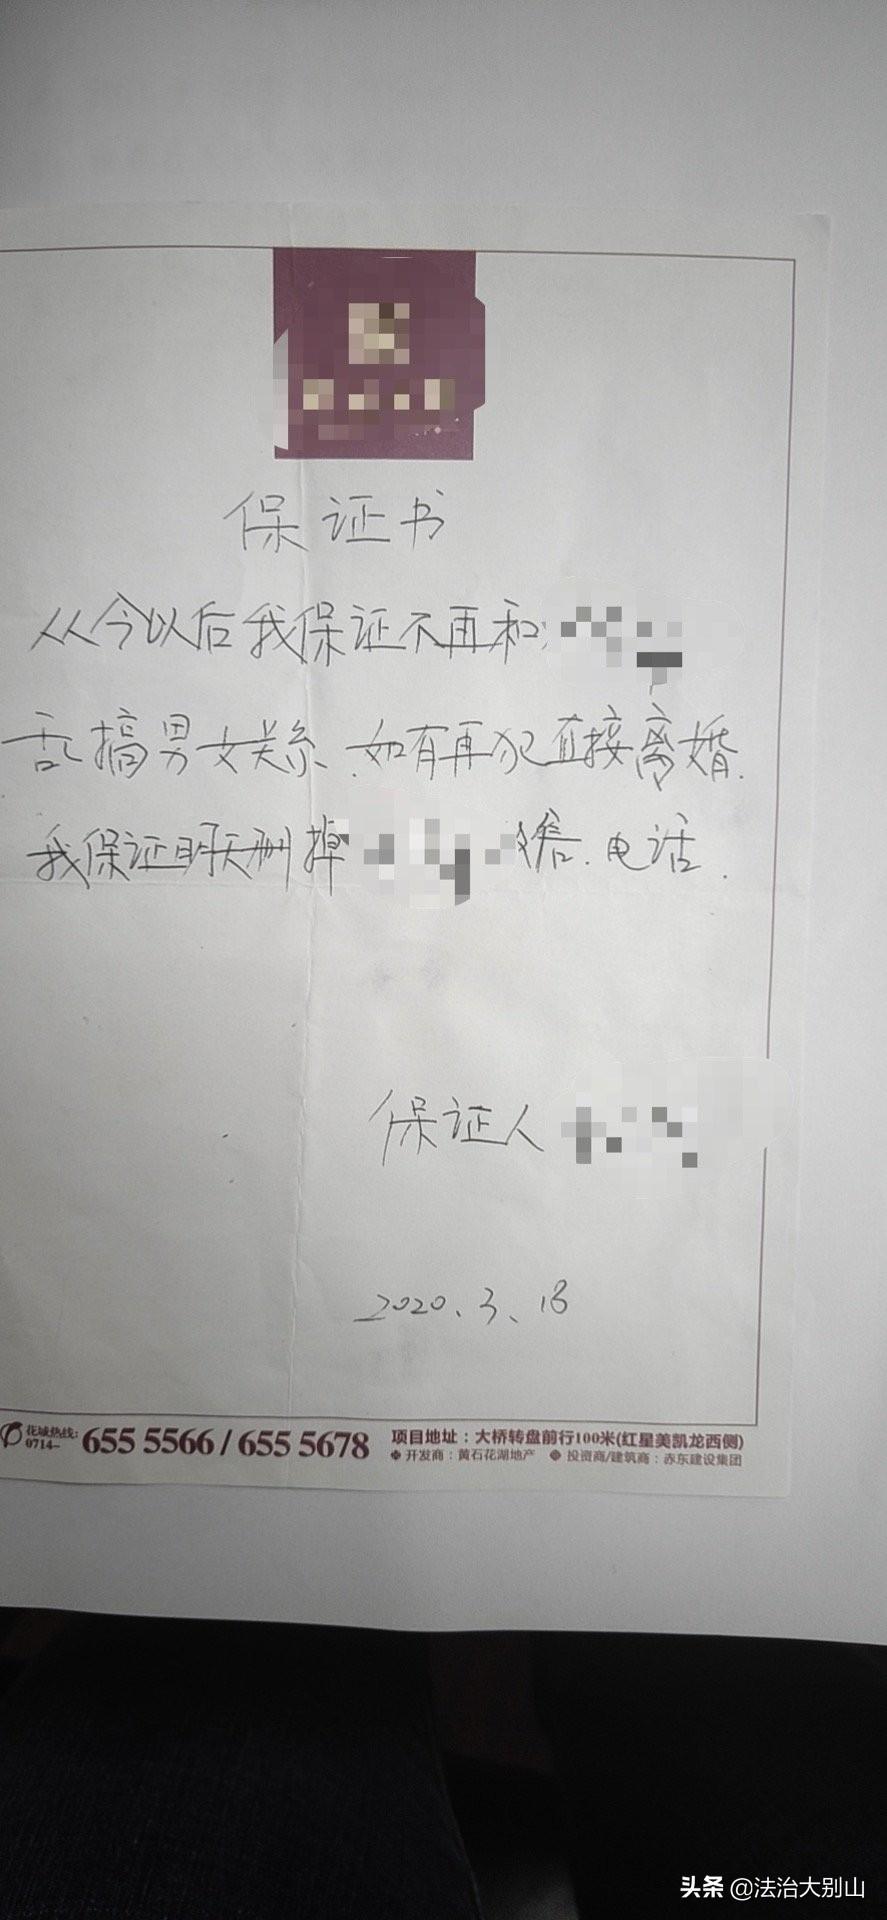 保证书
从今以后我保证不再和
乱搞男女关系、如有再犯直接离婚.
我保证明天删掉 微信.电话.
保证人
2020、3、18
花城热线:
0714-
655 5566 / 655 5678
项目地址：大桥转盘前行100米(红星美凯龙西侧)
开发商：黄石花湖地产 投资商/建筑商：赤东建设集团
头条 @法治大别山